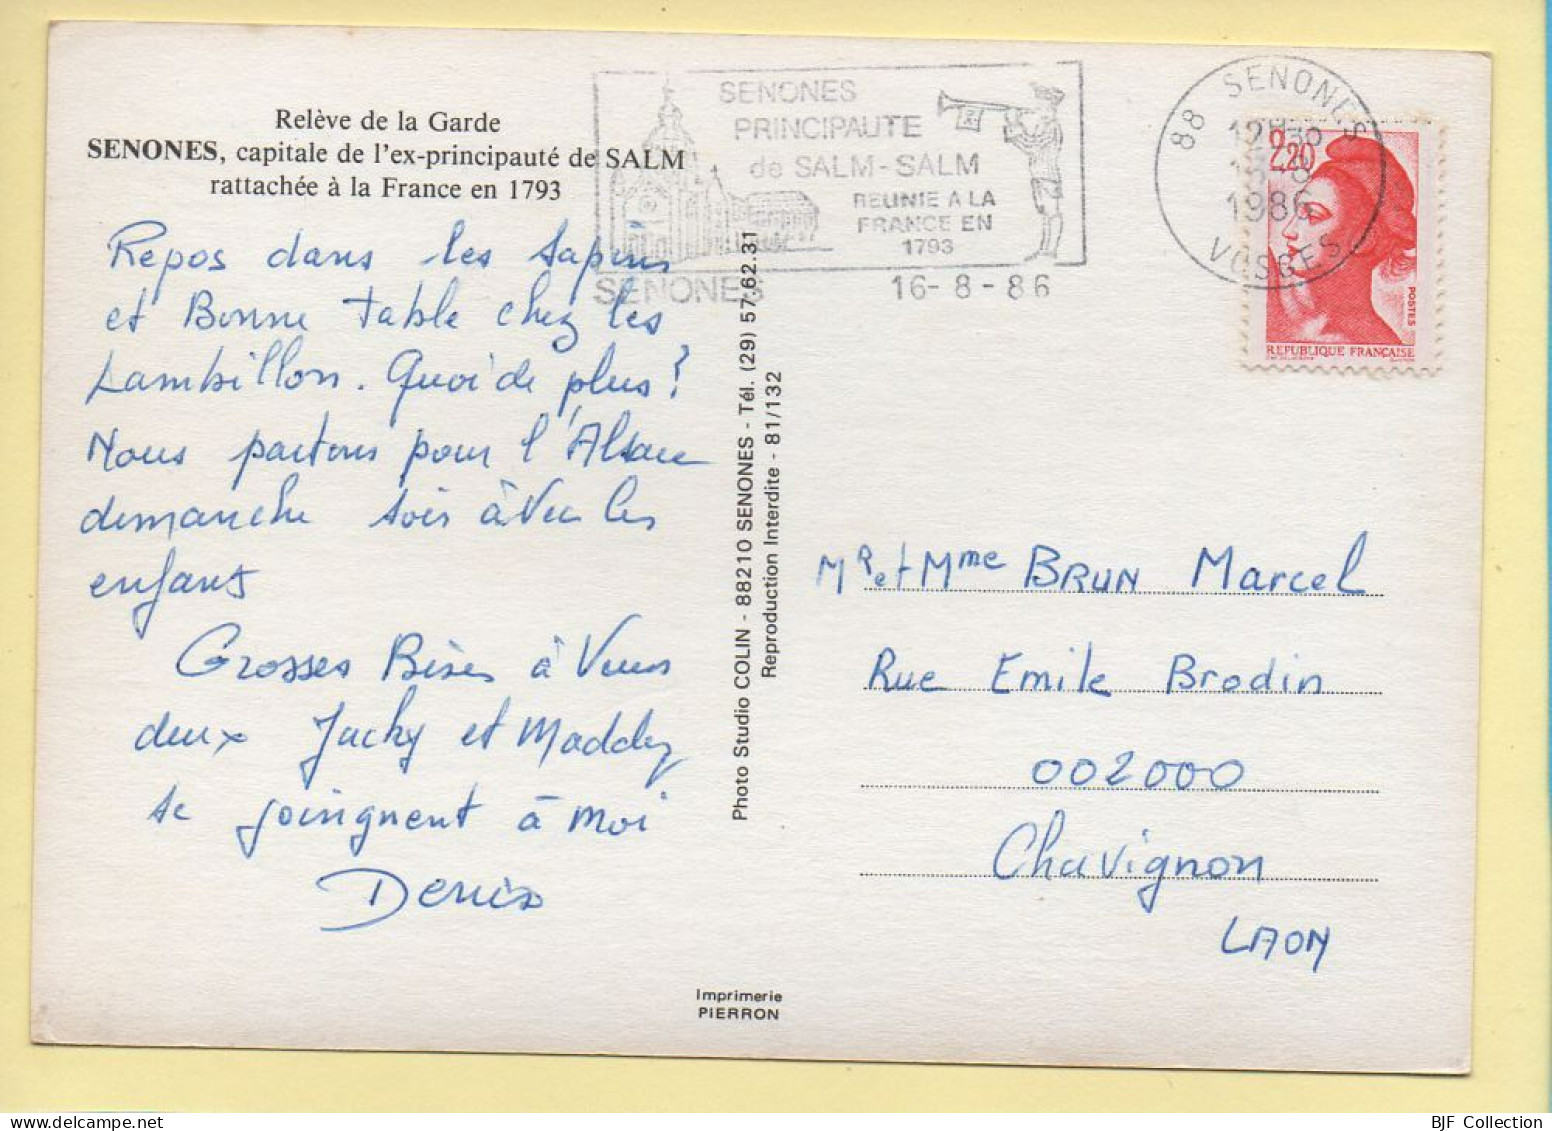 Relève de la Garde
SENONES, capitale de l'ex-principauté de SALM
rattachée à la France en 1793
Repos dans les sapins
et Bonne table chez les
Lambillon. Quoi de plus?
Nous partons pour l'Alsace
dimanche soir àvec les
enfants
Grosses Bises à Vous
deux Jacky et Maddy
se joingnent à moi
Denis
Photo Studio COLIN - 88210 SENONES - Tél. (29) 57.62.31
Reproduction Interdite - 81/132
Imprimerie
PIERRON
SENONES
PRINCIPAUTE
de SALM-SALM
REUNIE A LA
FRANCE EN
1793
SENONES
16-8-86
88 SENONES
1986
VOSGES
2,20
POSTES
REPUBLIQUE FRANÇAISE
MR et Mme BRUN Marcel
Rue Emile Brodin
002000
Chavignon
LAON
BJF Collection